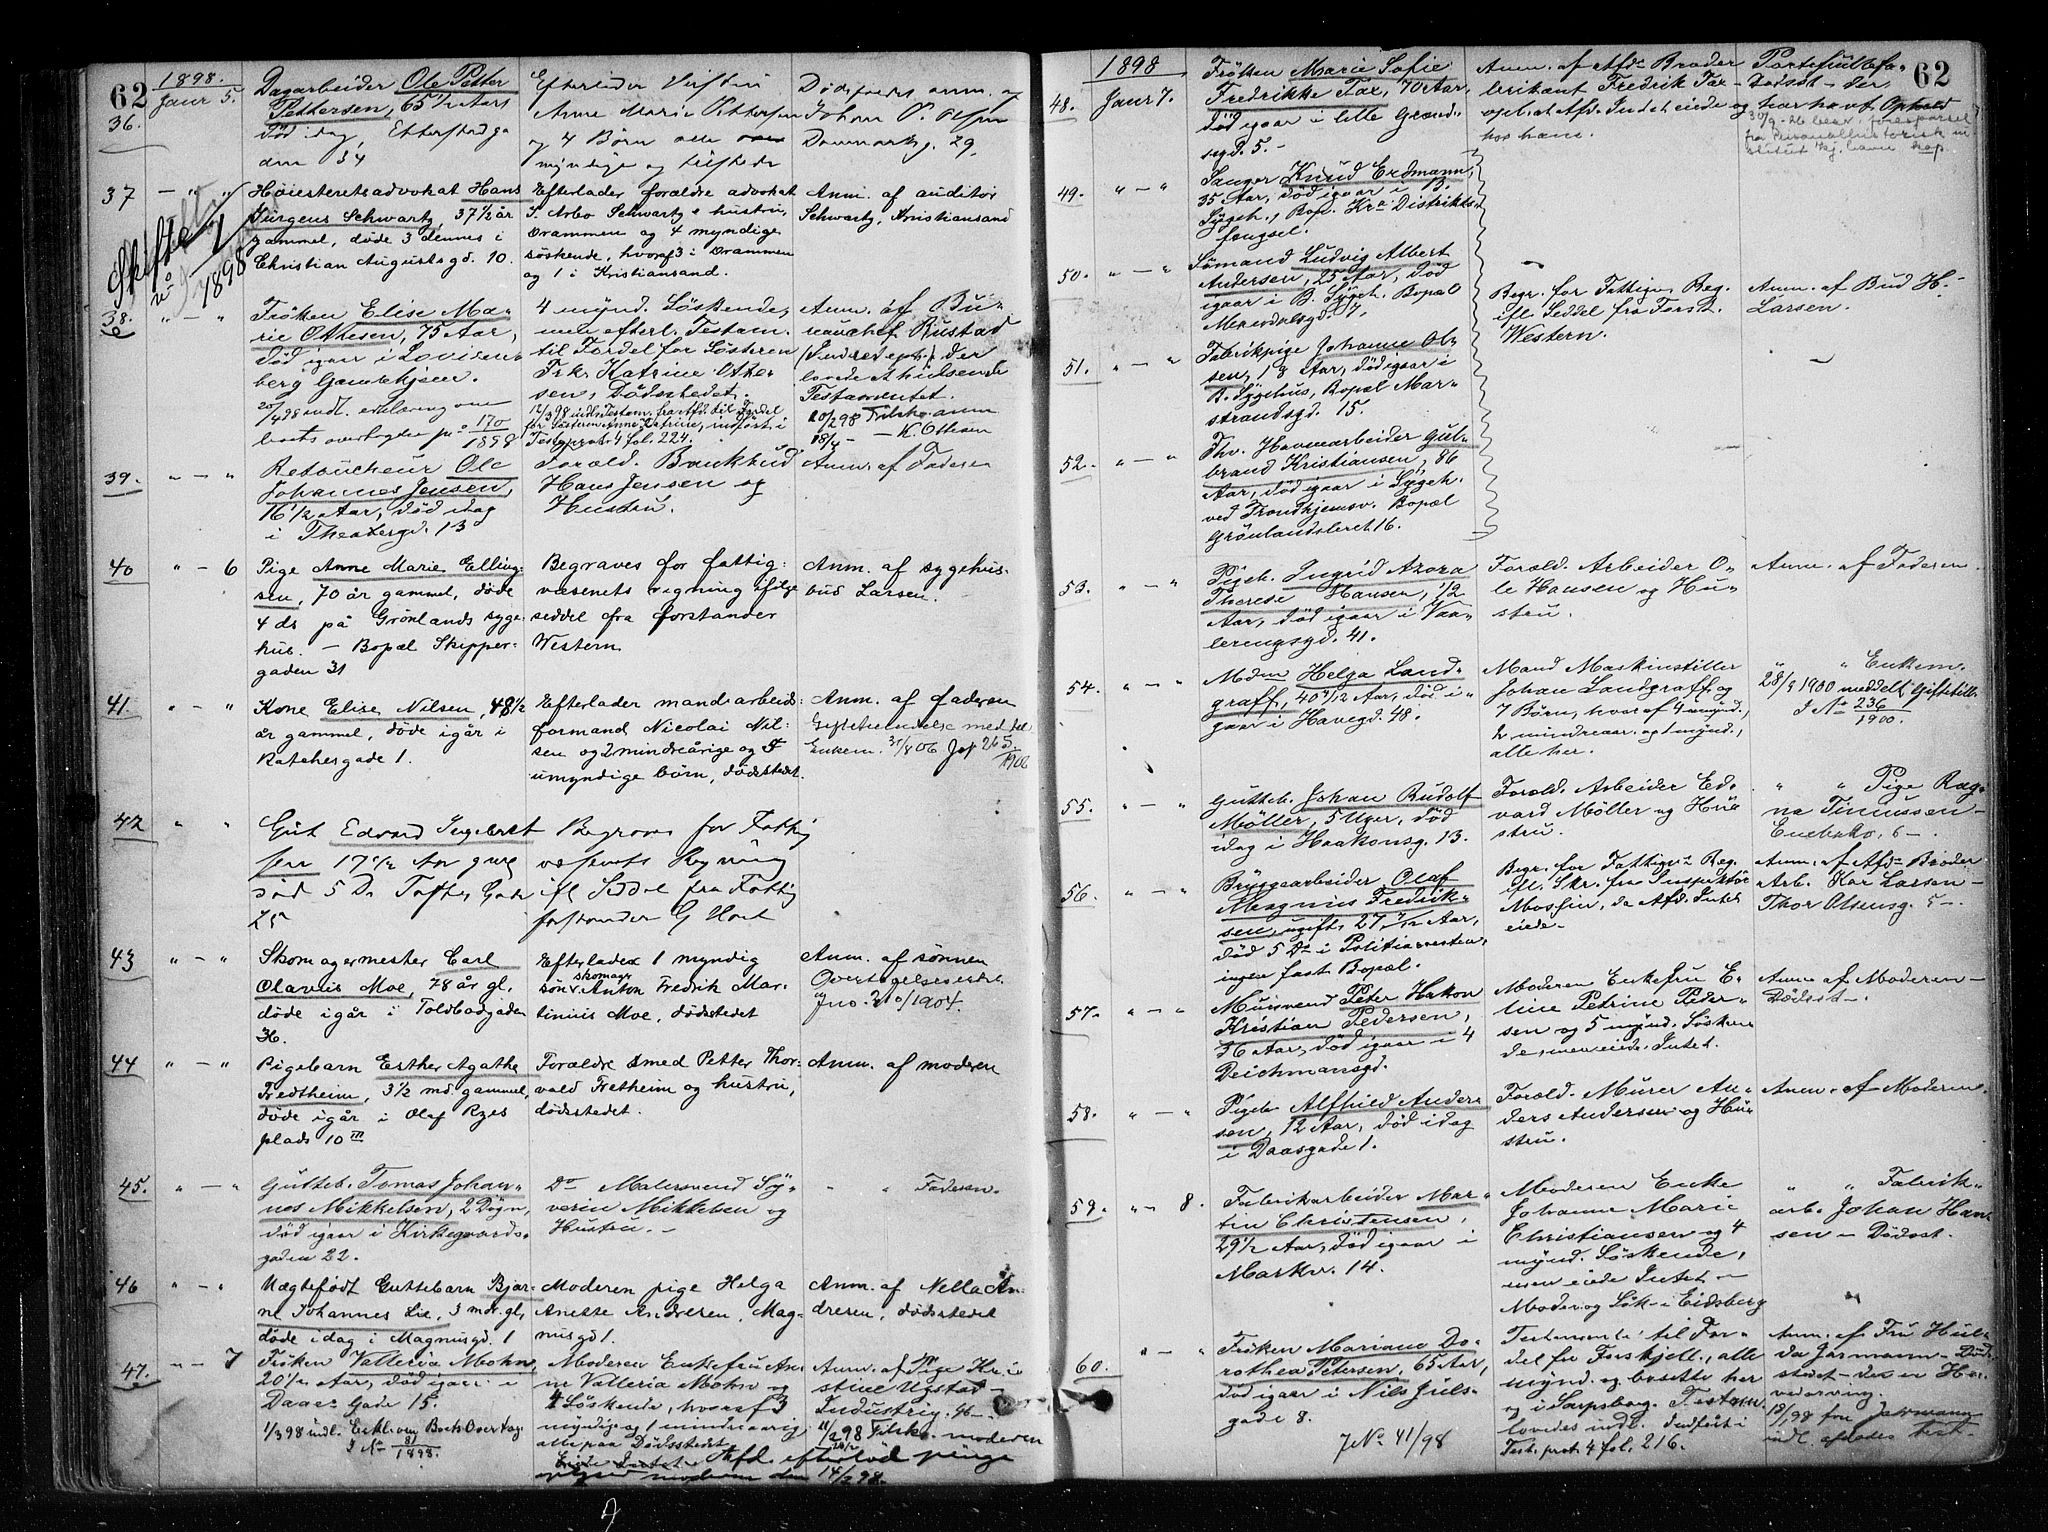 62
1898.
Janr 5.
36.
Dagarbeider Ole Petter
Pettersen, 65 1/2 Aars
død idag, Etterstadga
den 34
Efterlader
Anne Marie Pettersen
og 4 Børn alle
myndige og
Dødsfaldet anm. af
Johan P. Olsen
Danmarksg. 29.
37
Høiesteretsadvokat Hans
Jürgens Schwartz, 37 1/2 år
gammel, døde 3 dennes i
Christian Augustsgd. 10.
Efterlader forældre advokat
J. Arbo Schwartz & hustru,
Drammen og 4 myndige
søskende, hvoraf 3 i Drammen
og 1 i Kristiansand.
Anm. af auditør
Schwartz, Kristiansand
Skifte
1898
38.
Frøken Elise Ma-
rie Othesen, 75 Aar,
død igaar i Lovisen-
berg Gamlehjem.
20/4 98 indl. erklæring om
boets overtagelse 170/1898
4 mynd. Søskende,
men efterl. Testam.
til Fordel for Søsteren
Frk. Katrine Othe-
sen, Dødsstedet.
12/3 98 indk. Testam. fra Afd. til Fordel
for Søsteren Anne Katrine, indført i
Test. prot. 4 fol. 224.
Anm. af Bu-
reauchef Rustad
der
lovede at indsende
Testamentet.
10/2 98 Tilsk. anm
18/4 – K. Othesen
39.
Retoucheur Ole
Johannes Jensen,
16 1/2 Aar, død idag
i Theatergd. 13
Foræld. Bankbud
Hans Jensen og
Hustru.
Anm. af Faderen
40
" – 6
Pige Anne Marie Elling-
sen, 70 år gammel, døde
4 ds på Grønlands syge-
hus. – Bopæl Skipper-
gaden 31
Begraves for fattig-
væsenets regning ifølge
seddel fra forstander
Western
Anm. af sygehus-
bud Larsen.
41
" – "
Kone Elise Nilsen, 48 1/2
år gammel, døde igår i
Ratchesgade 1.
Efterlader mand arbeids-
formand Nicolai Nil-
sen og 2 mindreårige og 5
umyndige børn, dødsstedet.
Anm. af faderen
Enkem. 31/8 06
42
Gut Edvard Ingebret
17 1/2 Aar gml
død 5 Ds Toftes Gade
25
Begraves for Fattig
væsenets Regning
ifl Seddel fra Fattig
forstander G Horst
43
" – "
Skomagermester Carl
Olavus Moe, 78 år gl.
døde igår i Toldbodgaden
36.
Efterlader 1 myndig
søn skomager Anton Fredrik Mar-
tinius Moe, dødsstedet
Anm. af sønnen
Overtagelseserkl.
Jno. 210/1904.
44
" – "
Pigebarn Esther Agathe
Fredtheim, 3 1/2 md. gammel,
døde igår i Olaf Ryes
plads 10 III
Forældre smed Petter Thor-
vald Fretheim og hustru,
dødsstedet.
Anm. af moderen
45.
" – "
Gutteb. Tomas Johan-
nes Mikkelsen, 2 Døgn,
død igaar i Kirkegaards-
gaden 22.
Do Malersvend Sø-
verin Mikkelsen og
Hustru. –
" " Faderen.
46
" – "
Uægtefødt Guttebarn Bjar-
ne Johannes Lie, 3 mdr. gl,
døde idag i Magnusgd. 1
Moderen pige Helga
Anette Andresen, Mag-
nusgd 1.
Anm. af Nella An-
dresen, dødsstedet
47.
" – 7
Frøken Valleria Mohn
20 1/2 Aar, død igaar i
Daaes Gade 15.
1/3 98 indl. Erkl. om Boets Overtag.
J No 81/1898.
Moderen Enkefru An-
ne Valleria Mohn og
4 Søskende, hvoraf 3
myndige og 1 mindreaarig
alle paa Dødsstedet
Afd. efterlod penge
moderen den 14/2 98.
Anm. af Pige Kri-
stine Ugstad –
Industrig. 46 –
11/2 98 Tilsk. moderen
62
1898
48.
Janr 7.
Frøken Marie Sofie
Fredrikke Fax, 70 Aar,
død igaar i Lille Grænd-
segd. 5. –
Anm. af Afds Broder
brikant Fredrik Fax –
opl. at Afd. Intet eiede og
hos ham.
Portefuillefa-
Dødsst – der
har havt Ophold
30/9 – 26 besv. forespørsel
fra Personalhistorisk in
stitut Kj.havn
49.
" – "
Sanger Knud Erdmann,
35 Aar, død igaar i B.
Sygeh., Bop. Kra Distrikts-
fængsel.
50.
" – "
Sømand Ludvig Albert
Andersen, 25 Aar, død
igaar i B. Sygeh. Bopæl
Merendalsgd. 7.
Begr. for Fattigv. Reg.
ifl. Seddel fra Forst.
Western.
Anm. af Bud H.
Larsen.
51.
" – "
Fabrikpige Johanne Ol-
sen, 18 Aar, død igaar i
B. Sygehus, Bopæl Mar-
strandsgd. 15.
52.
" – "
Fhv. Havnearbeider Gul-
brand Kristiansen, 86
Aar, død igaar i Sygeh.
ved Trondhjemsv. Bopæl
Grønlandsleret 16.
53.
" – "
Pigeb. Ingrid Azora
Therese Hansen, 1/2
Aar, død igaar i Vaa-
lerengsgd. 41.
Foræld. Arbeider O-
le Hansen og Hu-
stru.
Anm. af Faderen.
54.
" – "
Mdm Helga Land-
graff, 40 7/12 Aar, død i-
gaar i Havegd. 48.
Mand Maskinstiller
Johan Landgraff og
7 Børn, hvoraf 4 umynd.,
2 mindreaar. og 1 mynd.,
alle her.
" " Enkem.
28/9 1900 meddelt Giftetill.
J No 236/1900.
55.
" – "
Gutteb. Johan Rudolf
Møller, 5 Uger, død
idag i Haakonsg. 13.
Foræld. Arbeider Ed-
vard Møller og Hu-
stru.
" " Pige Rag-
na Finnussen –
Enebakv. 6 –.
56.
" – "
Bryggearbeider Olaf
Magnus Fredrik-
sen, ugift, 27 7/12 Aar,
død 5 Ds i Politiarresten,
ingen fast Bopæl.
Begr. for Fattigvs Reg.
ifl. Skr. fra Inspektør
Mossin, da Afd. Intet
eiede.
Anm. af Afds Broder
Arb. Kar Larsen –
Thor Olsensg. 5 –.
57.
" – "
Murersvend Peter Hakon
Kristian Pedersen,
36 Aar, død igaar i 4
Deichmansgd.
Moderen Enkefru E-
line Petrine Peder-
sen og 5 mynd. Søsken
de, men eiede Intet.
Anm. af Moderen –
Dødsst –.
58.
" – "
Pigeb. Alfhild Ander-
sen, 12 Aar, død idag
i Daasgade 1.
Foræld. Murer An-
ders Andersen og Hu-
stru.
Anm. af Moderen.
59.
" – 8.
Fabrikarbeider Mar-
tin Christensen,
29 1/2 Aar, død igaar i
Markv. 14.
Moderen Enke
Johanne Marie
Christiansen og 4
mynd. Søskende,
men eiede Intet –
Moder og Søsk – i Eidsberg
" " Fabrik-
arb. Johan Han-
sen – Dødsst.
60.
" – "
Frøken Mariane Do-
rothea Petersen, 65 Aar,
død igaar i Nils Juls-
gade 8.
J No. 41/98
Testamente til For-
del for Forskjell., alle
mynd. og bosatte her
og i Sarpsborg. Testam.
lovedes indl. Indført i
Test. prot. 4 fol. 216.
Anm. af Fru Hul-
da Garmann – Døds-
stedet – des en He
vedarving.
18/1 98 fru Jahrmann
indl. afdødes test –